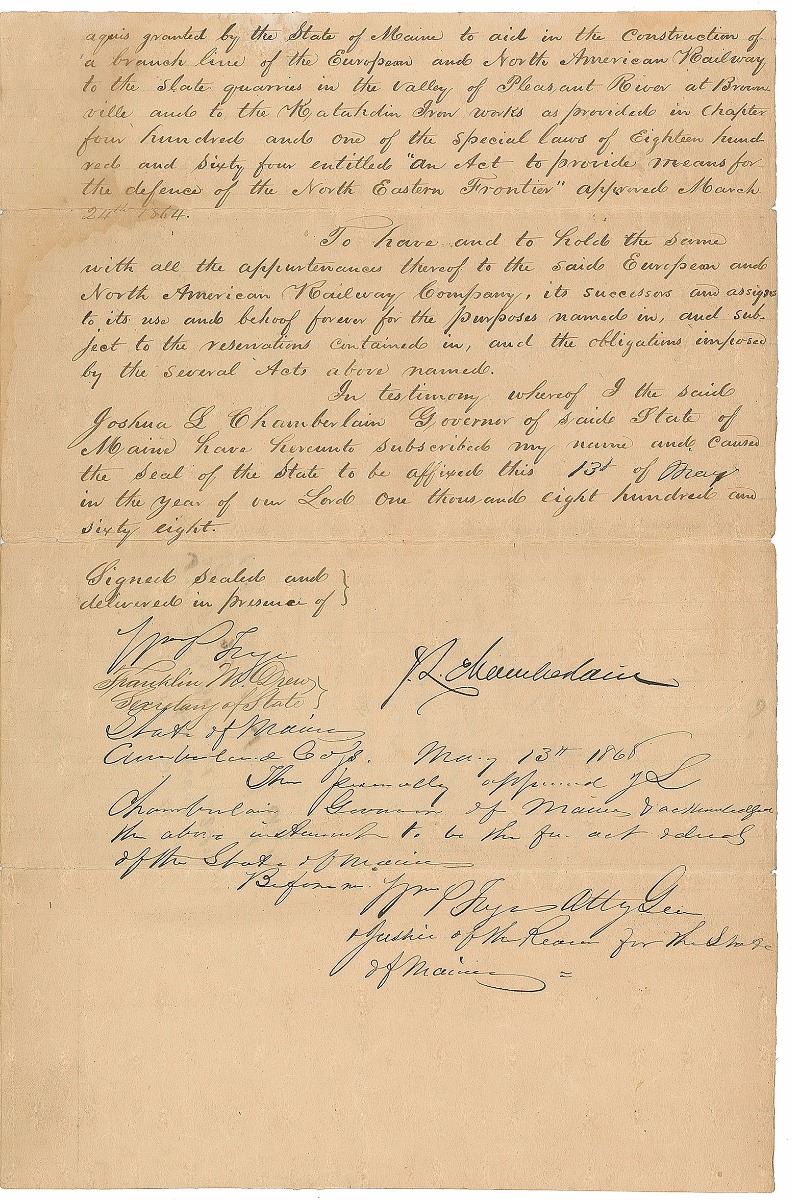 aquis granted by the State of Maine to aid in the Construction of
a branch line of the European and North American Railway
to the Slate quarries in the valley of Pleasant River at Brown
ville and to the Katahdin Iron works as provided in Chapter
four hundred and one of the special laws of Eighteen hund
red and sixty four entitled "an Act to provide means for
the defence of the North Eastern Frontier" approved March
24th 1864.
To have and to hold the same
with all the appurtenances thereof to the said European and
North American Railway Company, its successors and assigns
to its use and behoof forever for the purposes named in, and sub-
ject to the reservations contained in, and the obligations imposed
by the several Acts above named.
In testimony whereof I the said
Joshua L Chamberlain Governor of said State of
Maine have hereunto subscribed my name and caused
the seal of the State to be affixed this 13th of May
in the year of our Lord one thousand eight hundred and
sixty eight.
Signed sealed and
delivered in presence of }
Wm P Frye
J. L. Chamberlain
Franklin M. Drew }
Secretary of State
State of Maine
Cumberland Co ss. May 13th 1868
Then personally appeared J L
Chamberlain Governor of Maine & acknowledged
the above instrument to be the free act & deed
of the State of Maine
Before me. Wm P Frye Atty Gen
& Justice of the Peace for the State
of Maine =